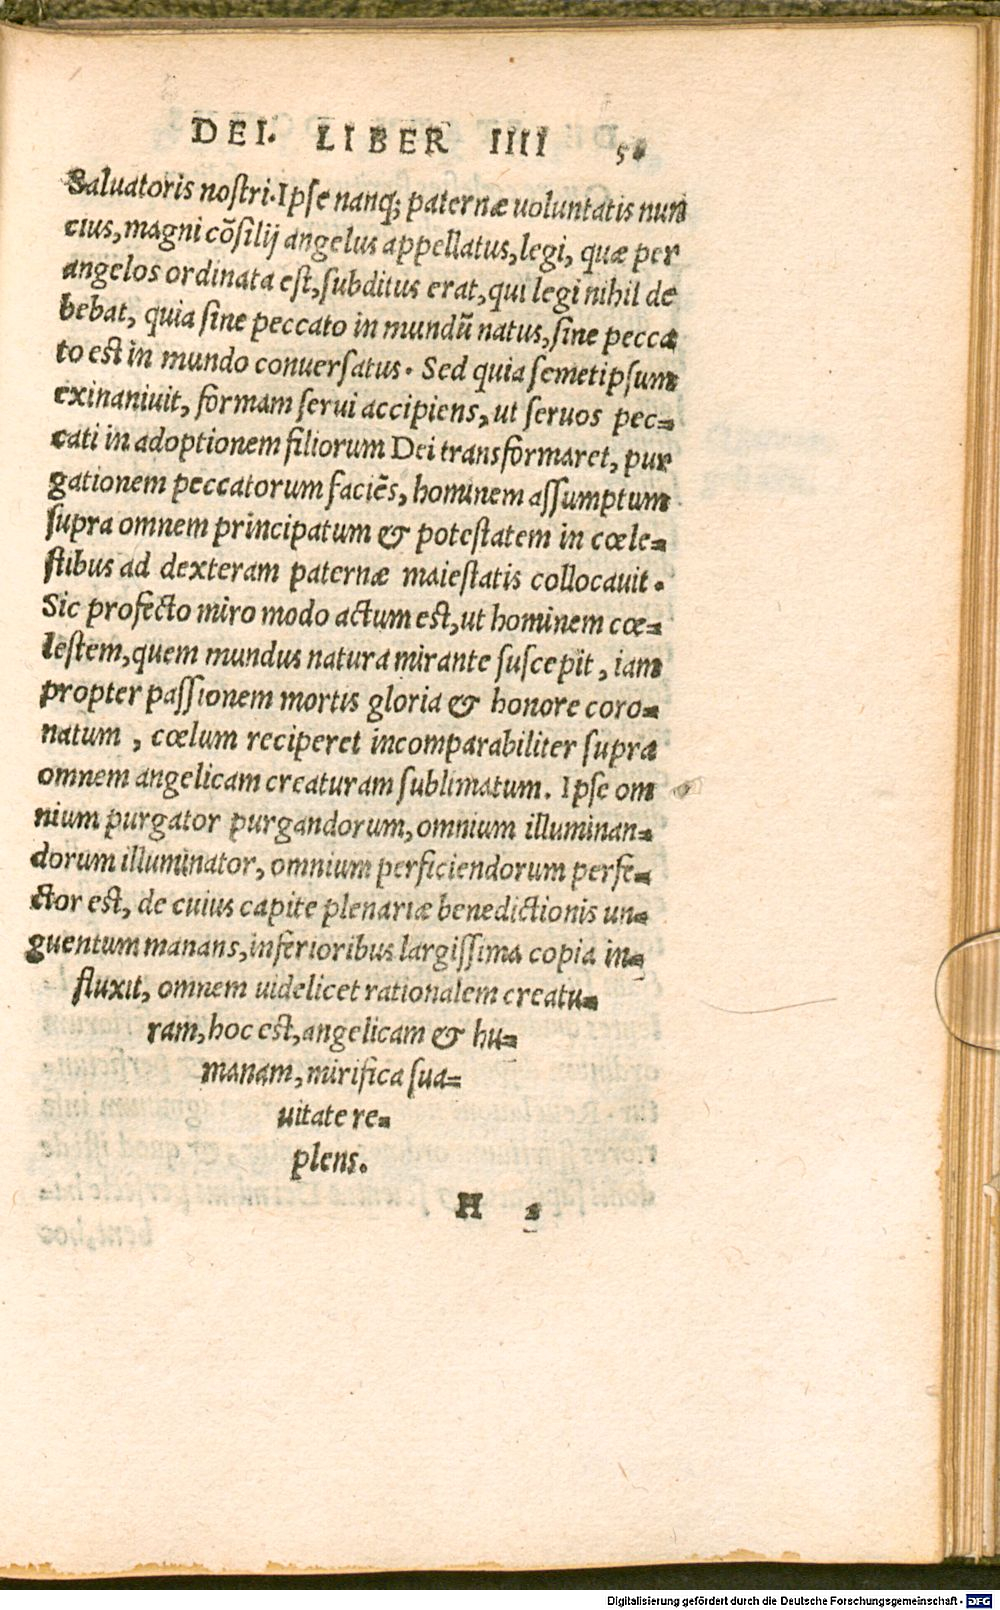 DEI. LIBER IIII
Saluatoris nostri. Ipse nanq; paternæ uoluntatis nun
cius, magni cõsilij angelus appellatus, legi, quæ per
angelos ordinata est, subditus erat, qui legi nihil de
bebat, quia sine peccato in mundũ natus, sine pecca
to est in mundo conuersatus. Sed quia semetipsum
exinaniuit, formam serui accipiens, ut seruos pec-
cati in adoptionem filiorum Dei transformaret, pur
gationem peccatorum faciẽs, hominem assumptum
supra omnem principatum & potestatem in cœle-
stibus ad dexteram paternæ maiestatis collocauit.
Sic profecto miro modo actum est, ut hominem cœ-
lestem, quem mundus natura mirante suscepit, iam
propter passionem mortis gloria & honore coro-
natum, cœlum reciperet incomparabiliter supra
omnem angelicam creaturam sublimatum. Ipse om
nium purgator purgandorum, omnium illuminan-
dorum illuminator, omnium perficiendorum perfe-
ctor est, de cuius capite plenariæ benedictionis un-
guentum manans, inferioribus largissima copia in-
fluxit, omnem uidelicet rationalem creatu-
ram, hoc est, angelicam & hu-
manam, mirifica sua-
uitate re-
plens.
H
Digitalisierung gefördert durch die Deutsche Forschungsgemeinschaft - DFG